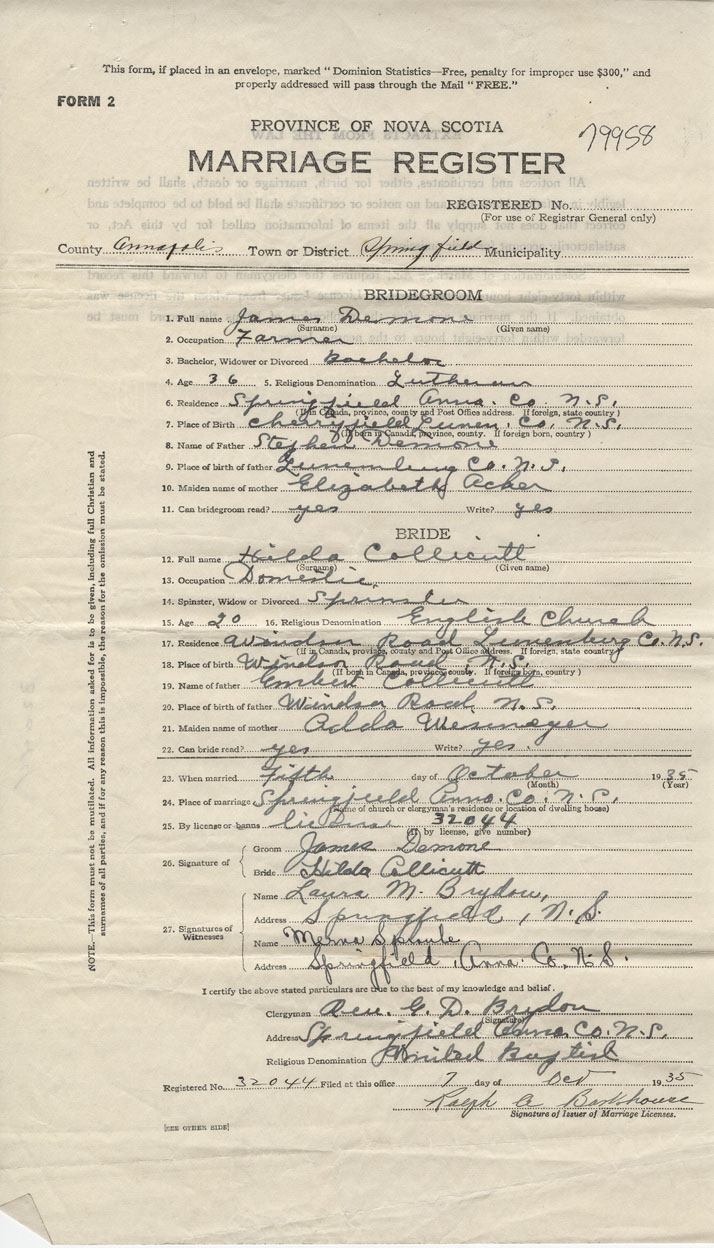 This form, if placed in an envelope, marked "Dominion Statistics—Free, penalty for improper use $300," and
properly addressed will pass through the Mail "FREE."
FORM 2
PROVINCE OF NOVA SCOTIA
79958
MARRIAGE REGISTER
REGISTERED No.
(For use of Registrar General only)
County Annapolis Town or District Springfield Municipality
BRIDEGROOM
1. Full name James Demone
(Surname) (Given name)
2. Occupation Farmer
3. Bachelor, Widower or Divorced Bachelor
4. Age 36 5. Religious Denomination Lutheran
6. Residence Springfield Anna. Co. N.S.
(If in Canada, province, county and Post Office address. If foreign, state country)
7. Place of Birth Cherryfield Lunen. Co. N.S.
(If born in Canada, province, county. If foreign born, country)
8. Name of Father Stephen Demone
9. Place of birth of father Lunenburg Co. N.S.
10. Maiden name of mother Elizabeth Acker
11. Can bridegroom read? yes Write? yes
BRIDE
12. Full name Hilda Collicutt
(Surname) (Given name)
13. Occupation Domestic
14. Spinster, Widow or Divorced Spinster
15. Age 20 16. Religious Denomination English Church
17. Residence Windsor Road Lunenburg Co. N.S.
(If in Canada, province, county and Post Office address. If foreign, state country)
18. Place of birth Windsor Road N.S.
(If born in Canada, province, county. If foreign born, country)
19. Name of father Collicutt
20. Place of birth of father Windsor Road, N.S.
21. Maiden name of mother Adda
22. Can bride read? yes Write? yes.
23. When married Fifth day of October 1935
(Month) (Year)
24. Place of marriage Springfield Anna. Co. N.S.
(Name of church or clergyman's residence or location of dwelling house)
25. By license or banns license 32044
(If by license, give number)
26. Signature of
Groom James Demone
Bride Hilda Collicutt
27. Signatures of Witnesses
Name Laura M. Brydon,
Address Springfield, N.S.
Name Merna Sproule
Address Springfield, Anna. Co. N.S.
I certify the above stated particulars are true to the best of my knowledge and belief.
Clergyman Rev. G. D. Brydon
(Signature)
Address Springfield Anna. Co. N.S.
Religious Denomination United Baptist
Registered No. 32044 Filed at this office 7 day of Oct 1935
Ralph A Barkhouse
Signature of Issuer of Marriage Licenses.
[SEE OTHER SIDE]
NOTE.—This form must not be mutilated. All information asked for is to be given, including full Christian and
surnames of all parties, and if for any reason this is impossible, the reason for the omission must be stated.